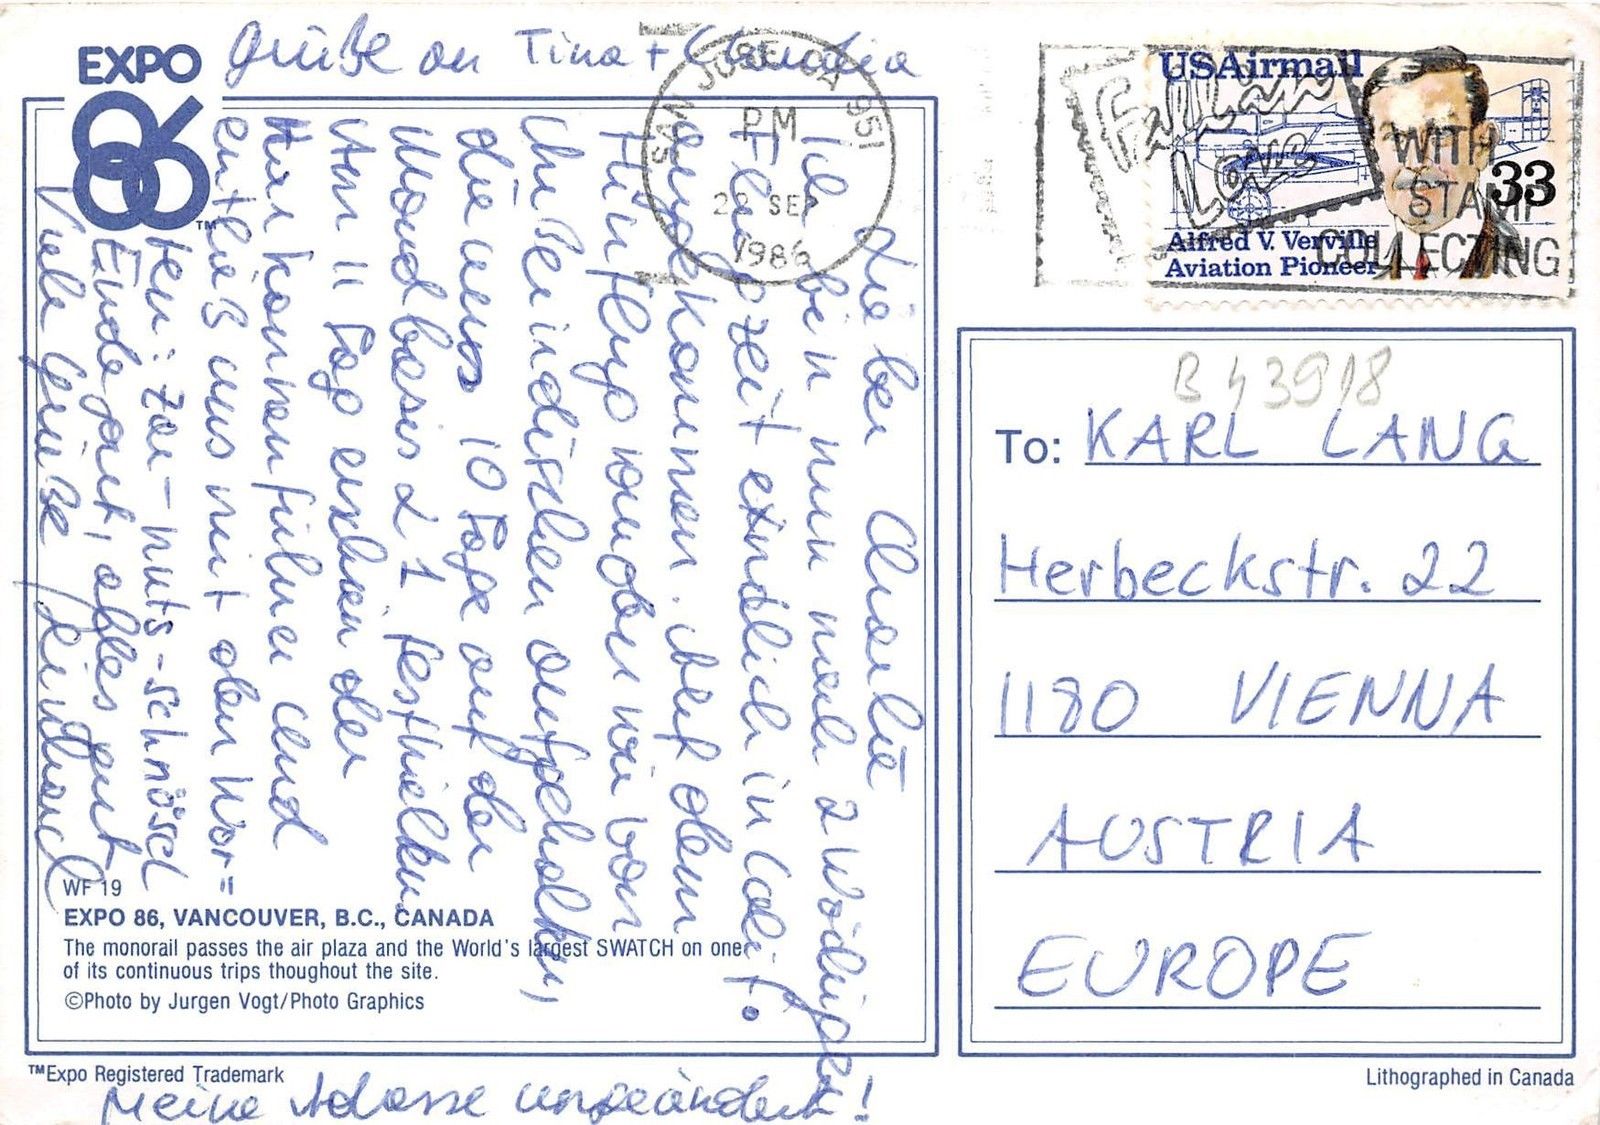 EXPO
86
™
Grüße an Tina + Claudia
SAN JOSE CA 951
PM
22 SEP
1986
USAirmail
33
Alfred V. Verville
Aviation Pioneer
Fall In
Love
WITH
STAMP
COLLECTING
Lieber
Ich bin nun nach 2 wöchiger
Flugzeit endlich in Calif.
angekommen. Auf dem
Hinflug wurden wir von
die uns 10 Tage auf der
Mondbasis α 1 festhielten
Am 11 Tag erschien der
und
entließ uns mit den Wor=
ten: zar-nuts-schnösel
Ende gut, alles gut
Viele Grüße
Meine Adresse unverändert!
WF 19
EXPO 86, VANCOUVER, B.C., CANADA
The monorail passes the air plaza and the World's largest SWATCH on one
of its continuous trips thoughout the site.
©Photo by Jurgen Vogt/Photo Graphics
™Expo Registered Trademark
B43918
To: KARL LANG
Herbeckstr. 22
1180 VIENNA
AUSTRIA
EUROPE
Lithographed in Canada